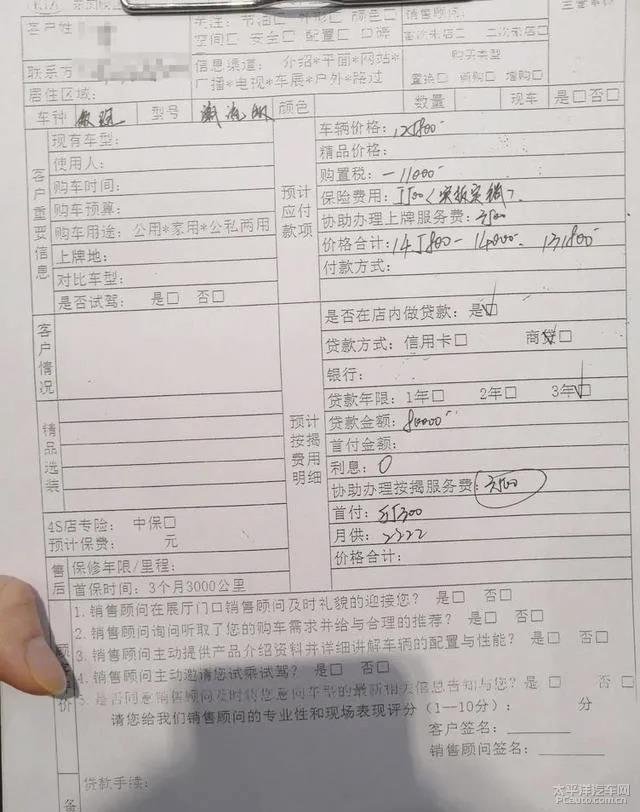 客户姓
关注：节油□ 外形□ 颜色□
空间□ 安全□ 配置□ 口碑
销售顾问：
首次来店□ 二次来店□
联系方
信息渠道： 介绍*平面*网站*
广播*电视*车展*户外*路过
购买类型
置换□ 新购□ 增购□
居住区域：
数量 现车 是□否□
车种 型号 颜色
现有车型：
使用人：
购车时间：
购车预算：
购车用途： 公用*家用*公私两用
上牌地：
对比车型：
是否试驾： 是□ 否□
客户重要信息
预计应付款项
车辆价格：125800
精品价格：
购置税：-11000
保险费用：5500（实报实销）
协助办理上牌服务费：3500
价格合计：145800-14000 131800
付款方式：
客户情况
精品选装
预计按揭费用明细
是否在店内做贷款：是□
贷款方式：信用卡□ 商贷□
银行：
贷款年限：1年□ 2年□ 3年□
贷款金额：80000
首付金额：
利息：0
协助办理按揭服务费：3500
首付：55300
月供：2222
价格合计：
4S店专险： 中保□
预计保费： 元
售后
保修年限/里程：
首保时间：3个月3000公里
1.销售顾问在展厅门口销售顾问及时礼貌的迎接您？ 是□ 否□
2.销售顾问询问听取了您的购车需求并给与合理的推荐？ 是□ 否□
3.销售顾问主动提供产品介绍资料并详细讲解车辆的配置与性能？ 是□ 否□
4.销售顾问主动邀请您试乘试驾？ 是□ 否□
5.是否同意销售顾问及时将您意向车型的最新相关信息告知与您？是□ 否□
请您给我们销售顾问的专业性和现场表现评分（1--10分）： 分
客户签名：
销售顾问签名：
贷款手续：
备
太平洋汽车网
PCauto.com.cn